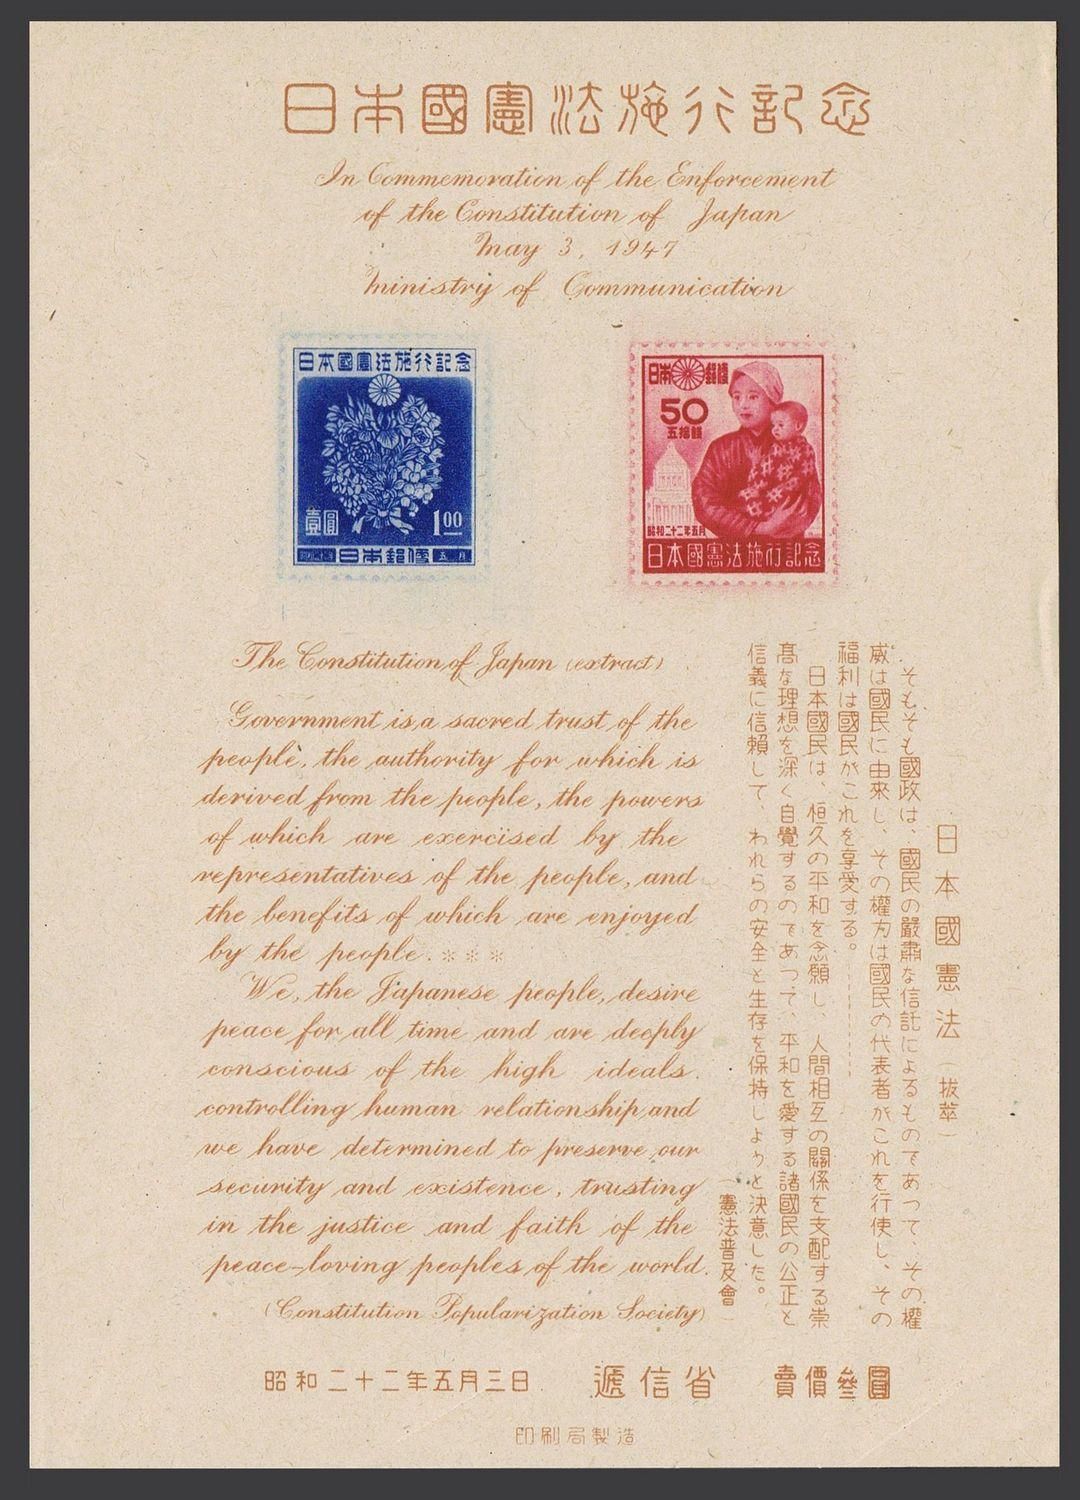 日本國憲法施行記念
In Commemoration of the Enforcement
of the Constitution of Japan
May 3, 1947
Ministry of Communication
日本國憲法施行記念
壹圓
1.00
日本郵便
五月
日本郵便
50
五拾錢
昭和二十二年五月
日本國憲法施行記念
The Constitution of Japan (extract)
Government is a sacred trust of the
people, the authority for which is
derived from the people, the powers
of which are exercised by the
representatives of the people, and
the benefits of which are enjoyed
by the people. ***
We, the Japanese people, desire
peace for all time and are deeply
conscious of the high ideals
controlling human relationship, and
we have determined to preserve our
security and existence, trusting
in the justice and faith of the
peace-loving peoples of the world.
(Constitution Popularization Society)
日本國憲法(抜萃)
そもそも國政は、國民の嚴肅な信託によるものであつて、その權
威は國民に由來し、その權力は國民の代表者がこれを行使し、その
福利は國民がこれを享受する。------
日本國民は、恒久の平和を念願し、人間相互の關係を支配する崇
高な理想を深く自覺するのであつて、平和を愛する諸國民の公正と
信義に信賴して、われらの安全と生存を保持しようと決意した。
(憲法普及會)
昭和二十二年五月三日 遞信省 賣價參圓
印刷局製造